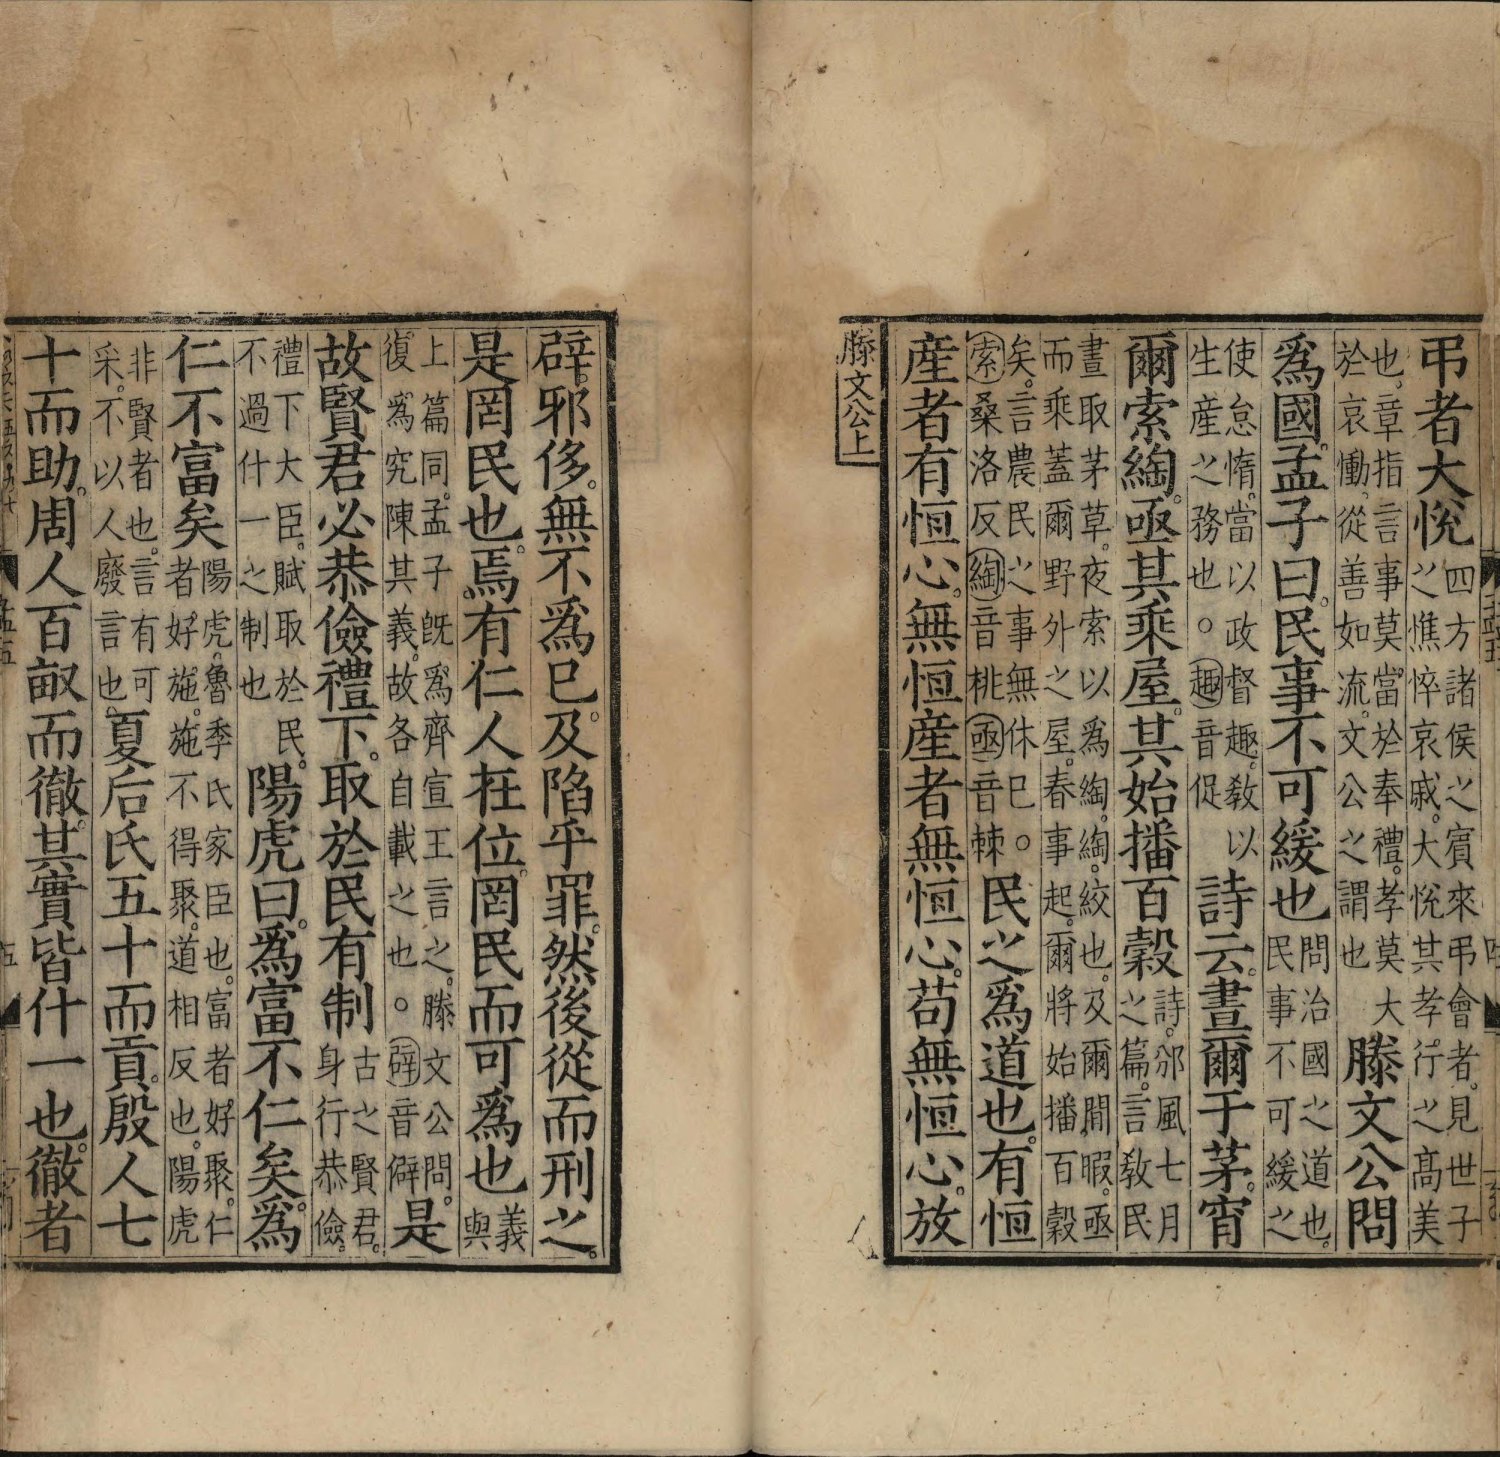 弔者大悅四方諸侯之賓來弔會者見世子
之憔悴哀戚。大悅其孝行之高美
也。章指言事莫當於奉禮。孝莫大
於哀慟從善如流。文公之謂也滕文公問
爲國。孟子曰。民事不可緩也問治國之道也。
民事不可緩之
使怠惰。當以政督趣。敎以
生產之務也。○趣音促詩云。晝爾于茅。宵
爾索綯。亟其乘屋。其始播百穀詩。邠風七月
之篇。言敎民
晝取茅草。夜索以爲綯。綯。絞也。及爾閒暇。亟
而乘蓋爾野外之屋。春事起。爾將始播百穀
矣。言農民之事無休已。○
索桑洛反綯音桃亟音棘民之爲道也。有恒
產者有恆心。無恆產者無恆心。苟無恆心。放
滕文公上
辟。邪侈。無不爲已。及陷乎罪。然後從而刑之。
是罔民也。焉。有仁人在位。罔民而可爲也義
與
上篇同。孟子既爲齊宣王言之。滕文公問。
復爲究陳其義。故各自載之也。○辟音僻是
故賢君必恭儉禮下。取於民有制古之賢君。
身行恭儉。
禮下大臣。賦取於民。
不過什一之制也陽虎曰。爲富不仁矣。爲
仁不富矣陽虎。魯季氏家臣也。富者好聚。仁
者好施。施不得聚。道相反也。陽虎
非賢者也。言有可
采。不以人廢言也。夏后氏五十而貢。殷人七
十而助。周人百畝而徹。其實皆什一也。徹者